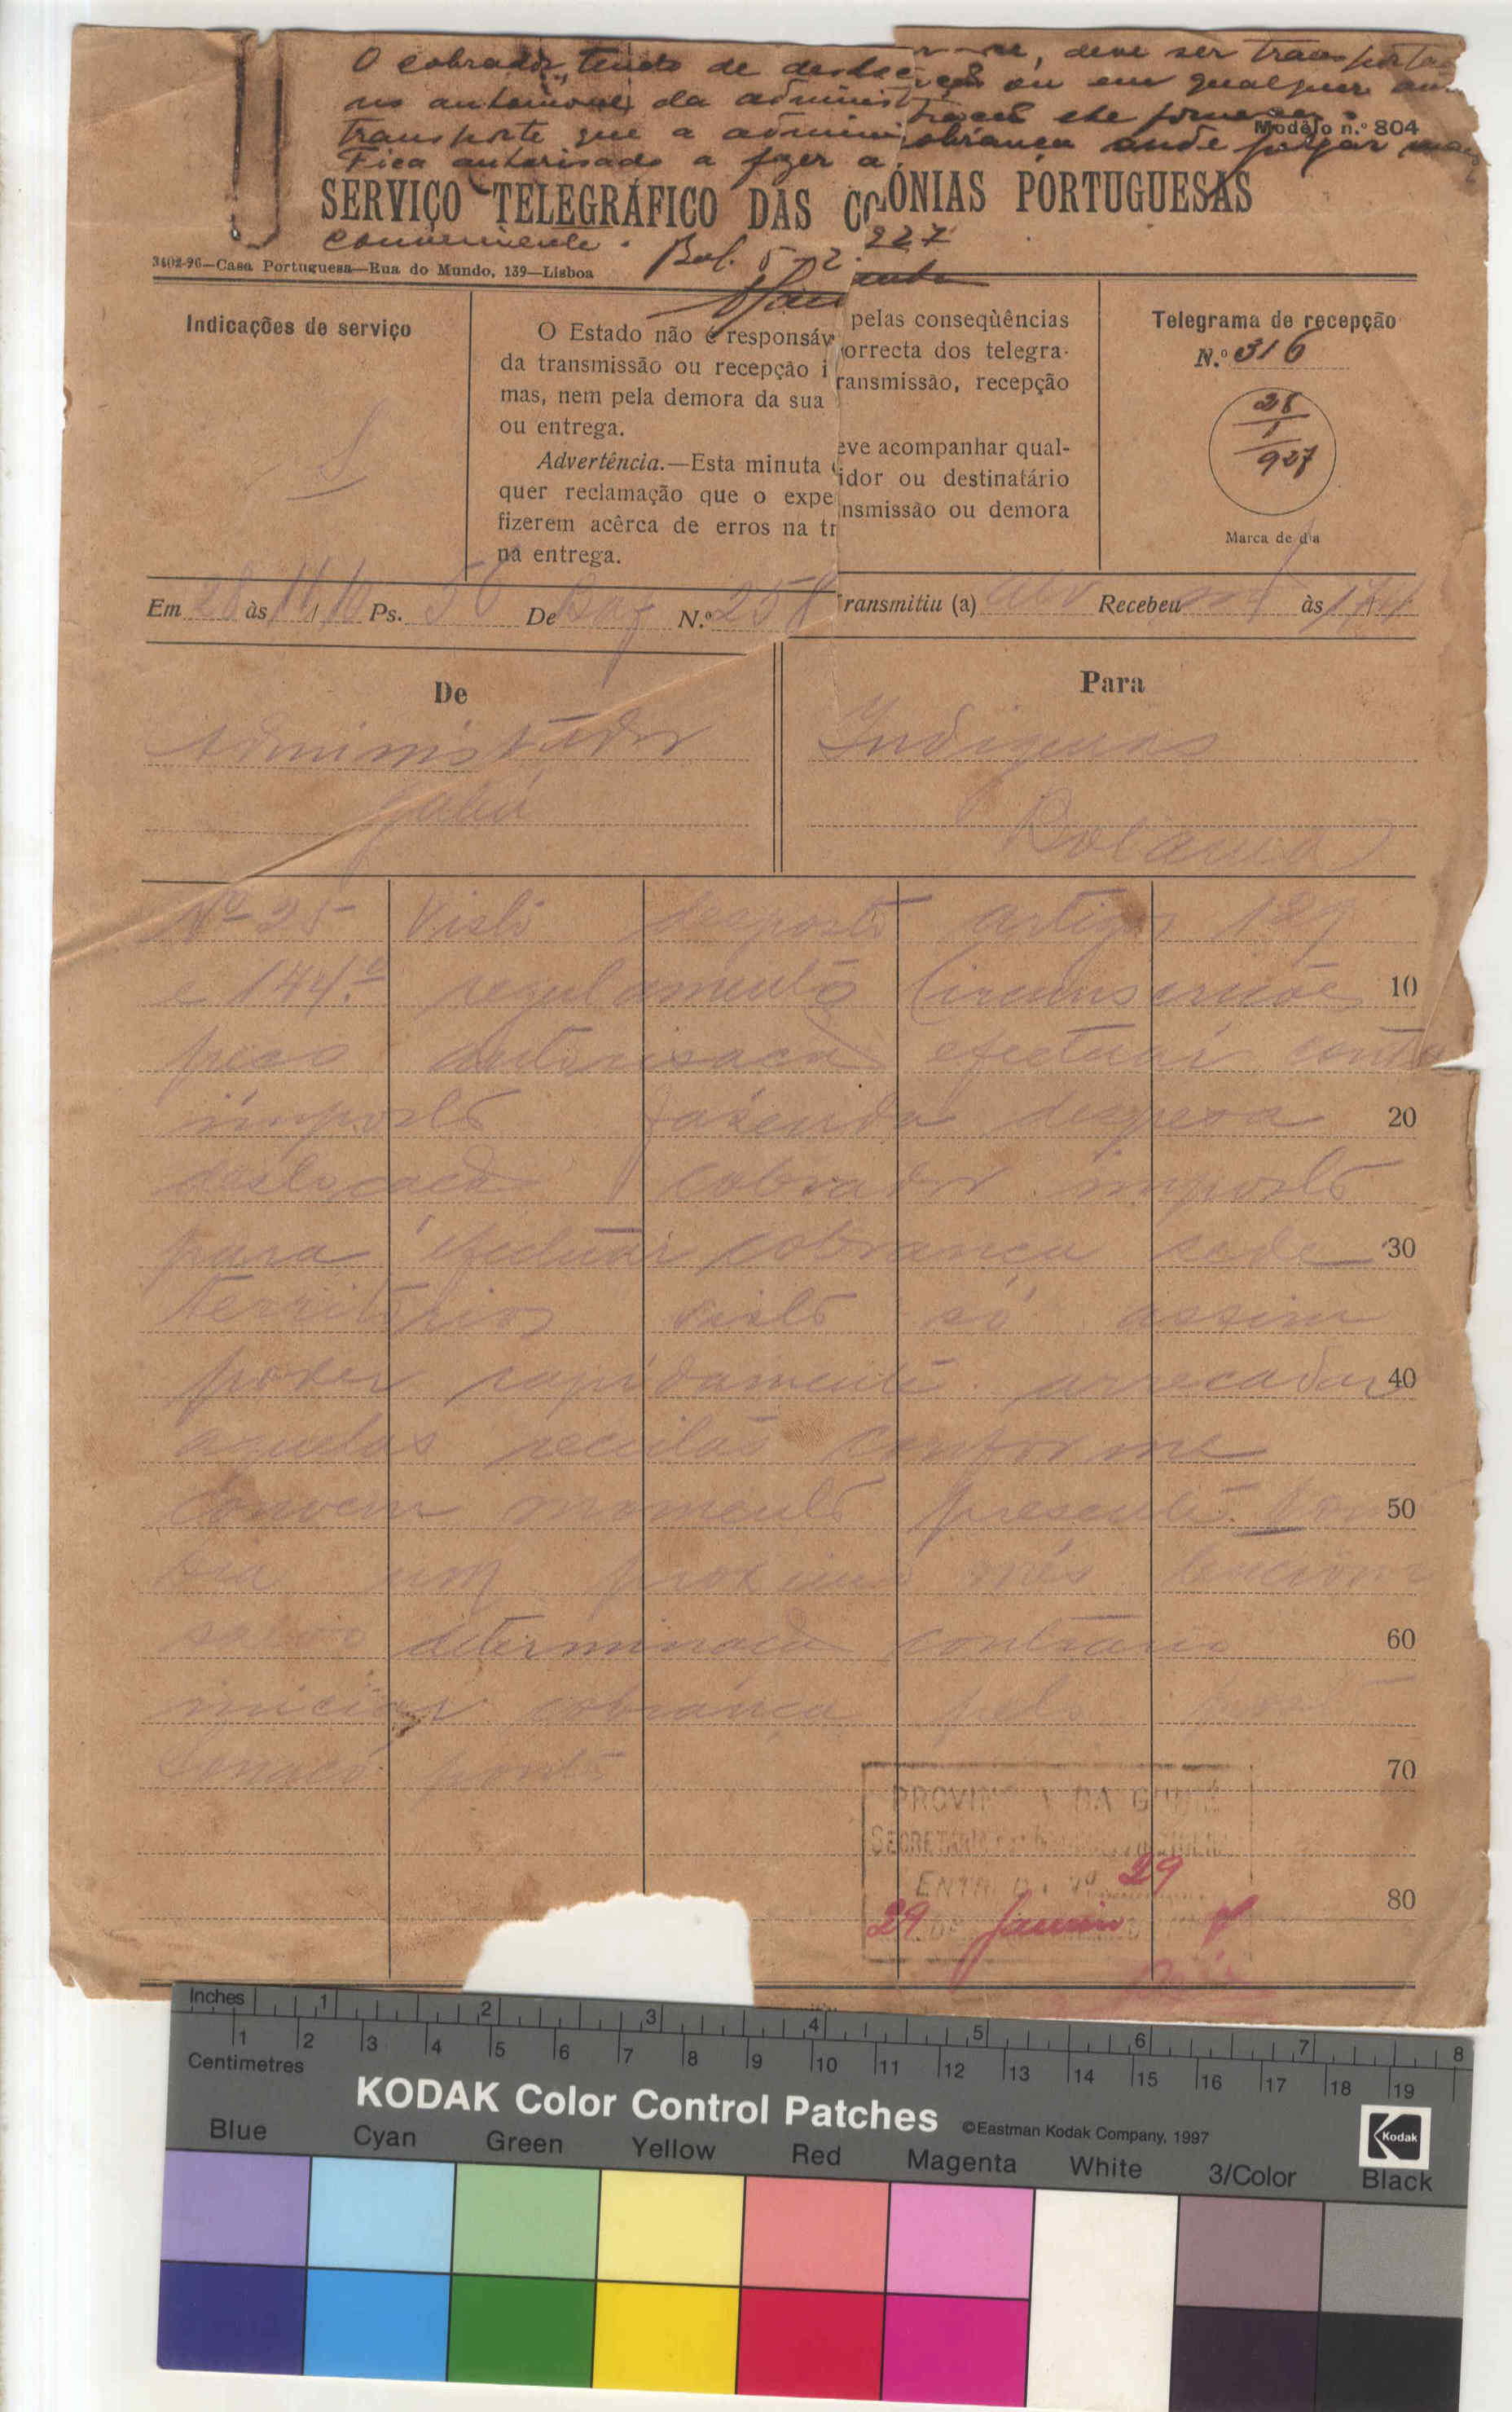 O cobrador, tendo de deslocar-se, deve ser transportado
no automovel da administração ou em qualquer outro
transporte que a administração lhe forneça.
Fica autorisado a fazer a cobrança onde julgar mais
Modêlo n.º 804
SERVIÇO TELEGRÁFICO DAS COLÓNIAS PORTUGUESAS
conveniente. Bol. 5-2-927
3402-96—Casa Portuguesa—Rua do Mundo, 139—Lisboa
Indicações de serviço
O Estado não é responsáv pelas conseqùências
da transmissão ou recepção i orrecta dos telegra-
mas, nem pela demora da sua ransmissão, recepção
ou entrega.
Advertência.—Esta minuta eve acompanhar qual-
quer reclamação que o expe idor ou destinatário
fizerem acêrca de erros na tr nsmissão ou demora
na entrega.
Telegrama de recepção
N.º 316
28
1
927
Marca de dia
Em 28 às 16/10 Ps. 56 De N.º 25 Transmitiu (a) Recebeu às
De
Administrador
Gabú
Para
Indigenas
Bolama
Nº 25 Visto desposto artigos 129
e 144.º regulamento Circunscrições 10
peço autorisação efectuar conta
imposto fazenda despesa 20
deslocação cobrador imposto
para efectuar cobrança sede 30
territorios visto só assim
poder rapidamente arrecadar 40
aquelas receitas conforme
convem momento presente. 50
dia um proximo mês tenciono
salvo determinação contraria 60
iniciar cobrança pelo posto
Sonacó ponto 70
PROVINCIA DA GUINÉ
SECRETARIA
ENTRADA Nº 29
29 DE Janeiro 7
80
Inches 1 2 3 4 5 6 7 8
Centimetres 1 2 3 4 5 6 7 8 9 10 11 12 13 14 15 16 17 18 19
KODAK Color Control Patches ©Eastman Kodak Company, 1997 Kodak
Blue Cyan Green Yellow Red Magenta White 3/Color Black